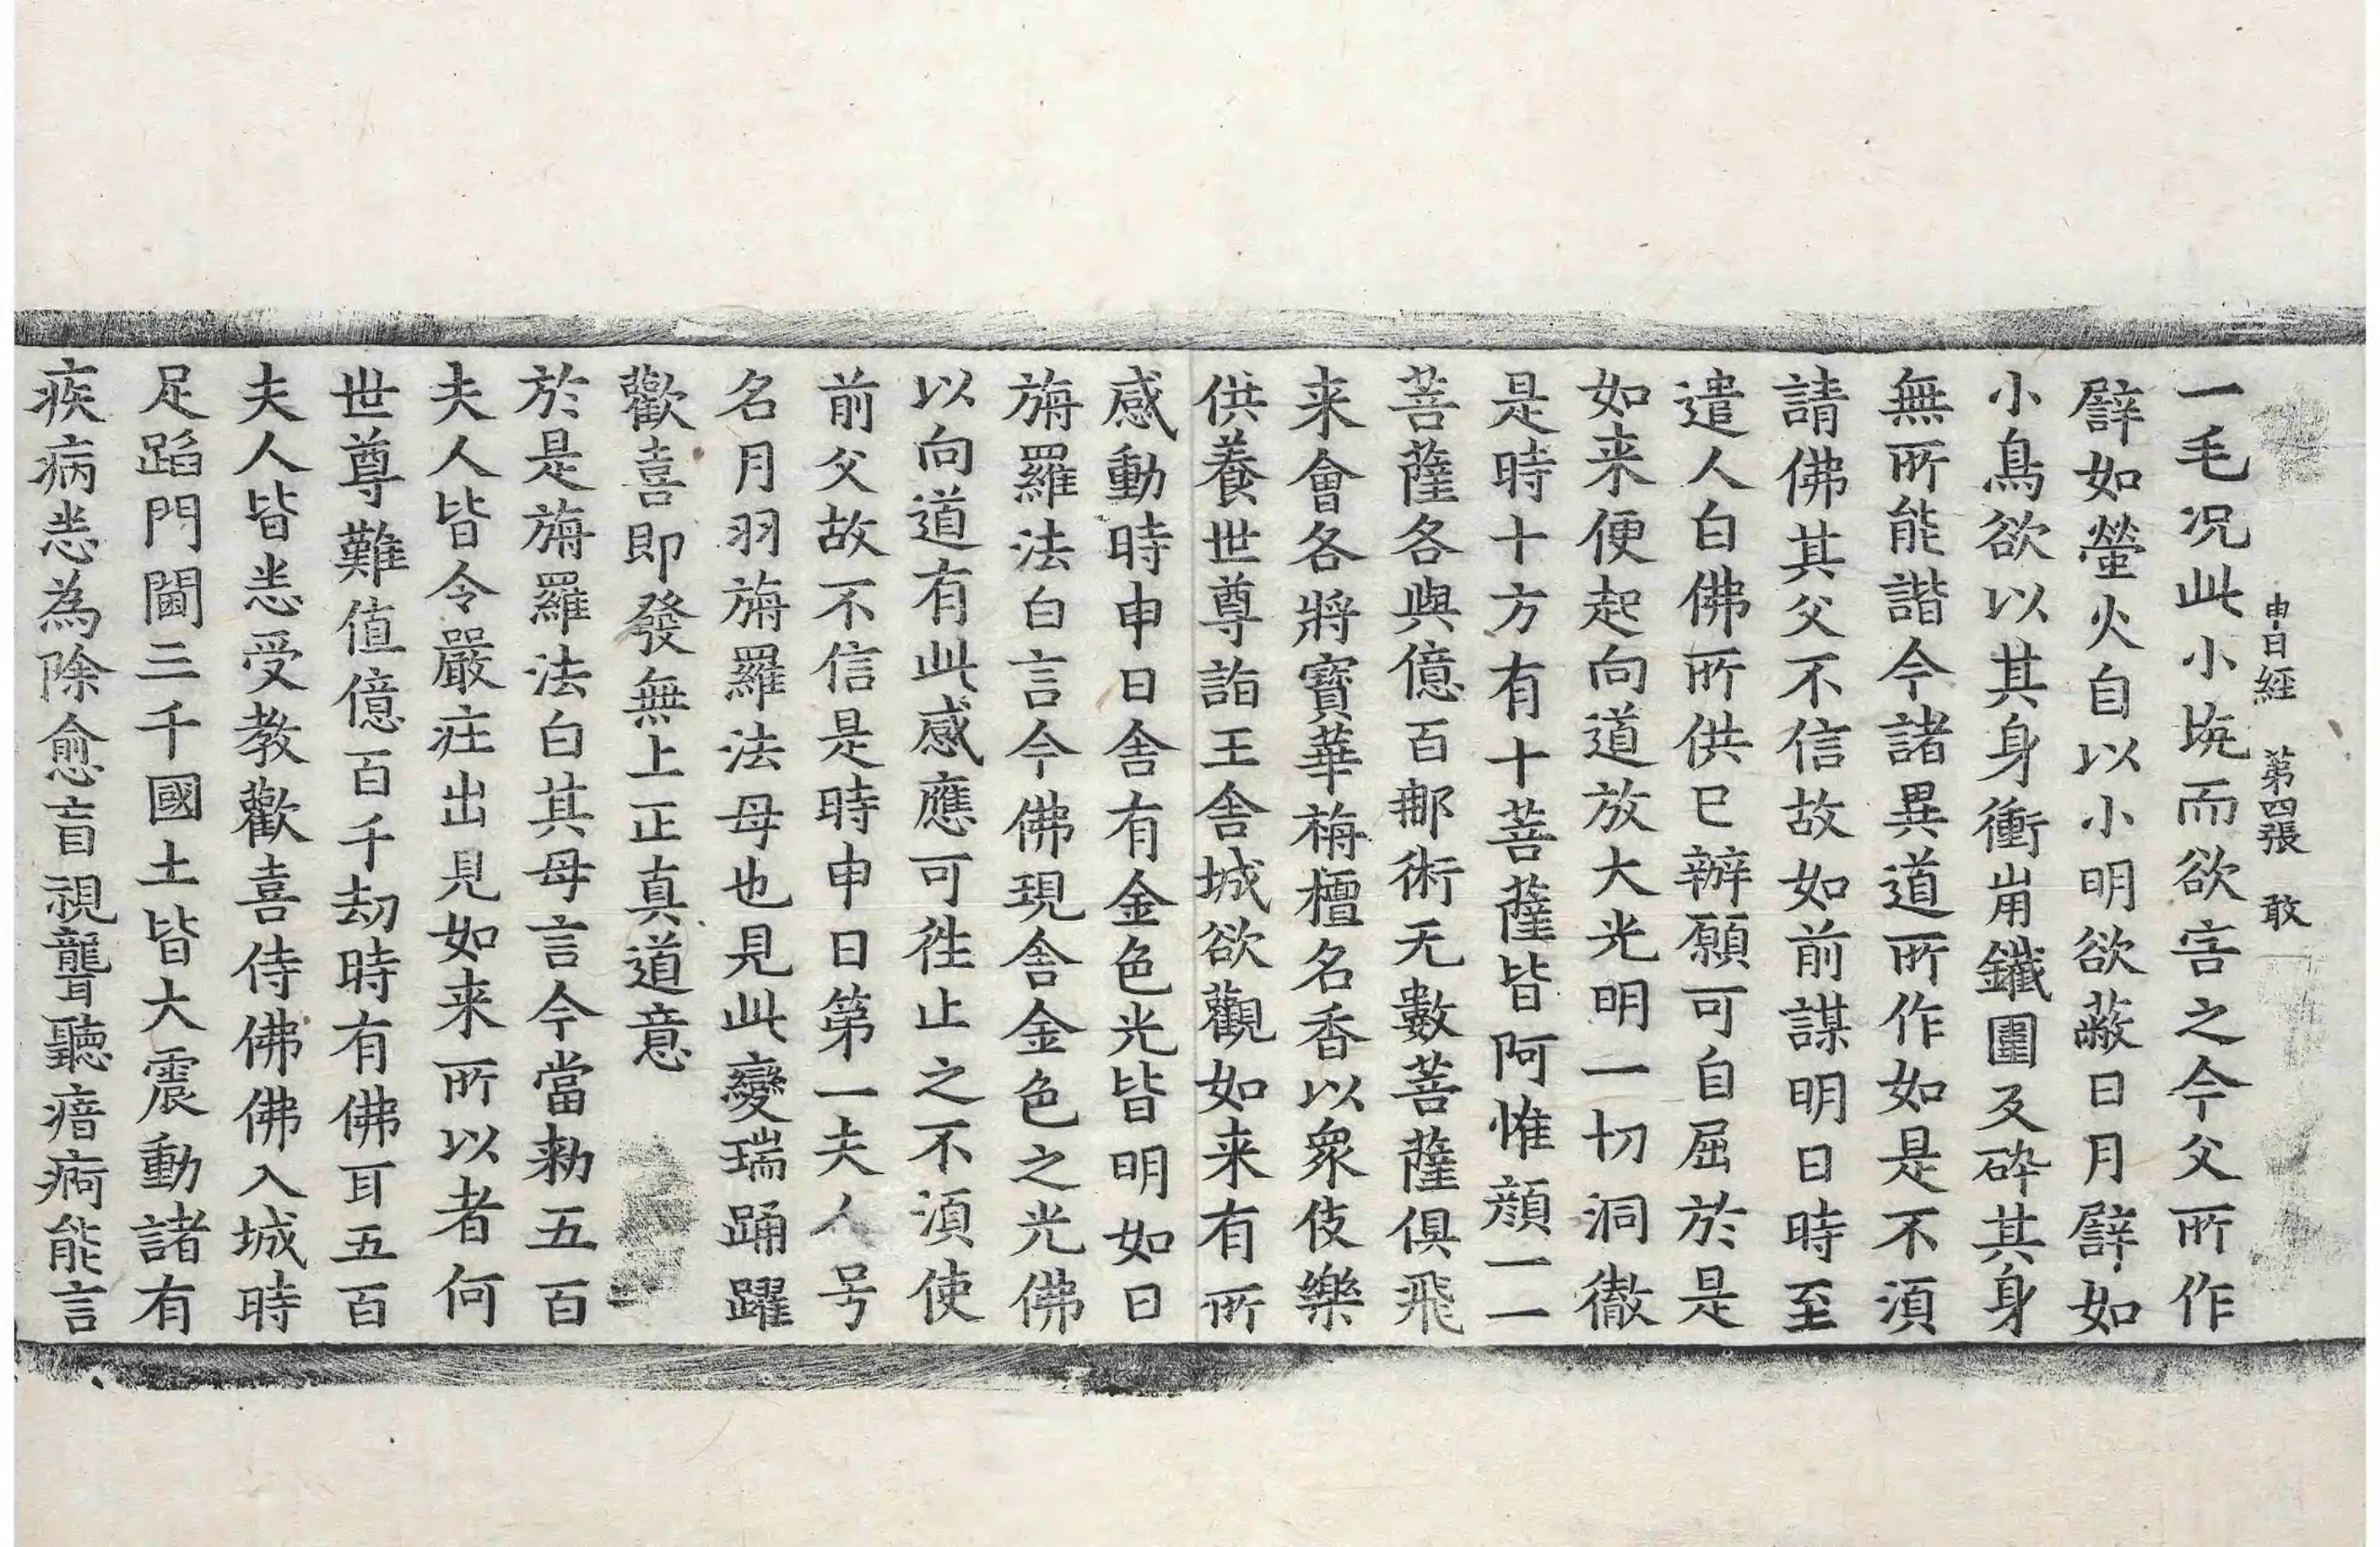 申日經　第四張　敢
一毛况此小坑而欲害之今父所作
譬如螢火自以小明欲蔽日月譬如
小鳥欲以其身衝崩鐵圍反碎其身
無所能諧今諸異道所作如是不須
請佛其父不信故如前謀明日時至
遣人白佛所供已辦願可自屈於是
如来便起向道放大光明一切洞徹
是時十方有十菩薩皆阿惟顔一一
菩薩各與億百那術无數菩薩俱飛
来會各將寶華栴檀名香以衆伎樂
供養世尊詣王舍城欲觀如来有所
感動時申日舍有金色光皆明如日
旃羅法白言今佛現舍金色之光佛
以向道有此感應可徃止之不須使
前父故不信是時申日第一夫人号
名月羽旃羅法母也見此變瑞踊躍
歡喜即發無上正真道意
於是旃羅法白其母言今當勑五百
夫人皆令嚴庄出見如来所以者何
世尊難值億百千劫時有佛耳五百
夫人皆悉受教歡喜侍佛佛入城時
足蹈門閫三千國土皆大震動諸有
疾病悉為除愈盲視聾聽瘖瘂能言